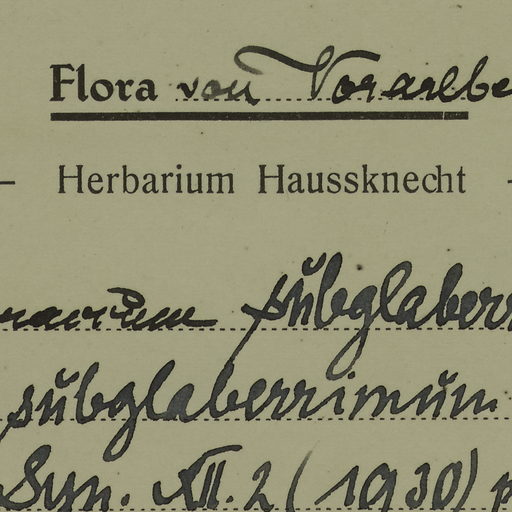 Flora von Vorarlbe
– Herbarium Haussknecht –
subglaberr
subglaberrimum
Syn. XII. 2 (1930) p